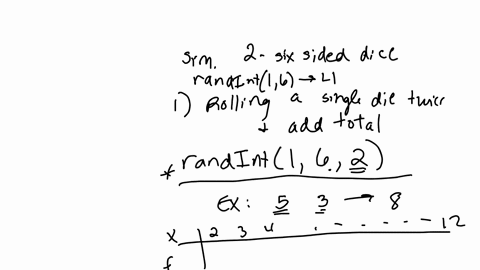 Sim. 2 - six sided dice
randInt(1,6) → L1
1) Rolling a single die twice
+ add total
* randInt(1, 6, 2)
EX: 5 3 → 8
x | 2 3 4 . - - - - - 12
f |